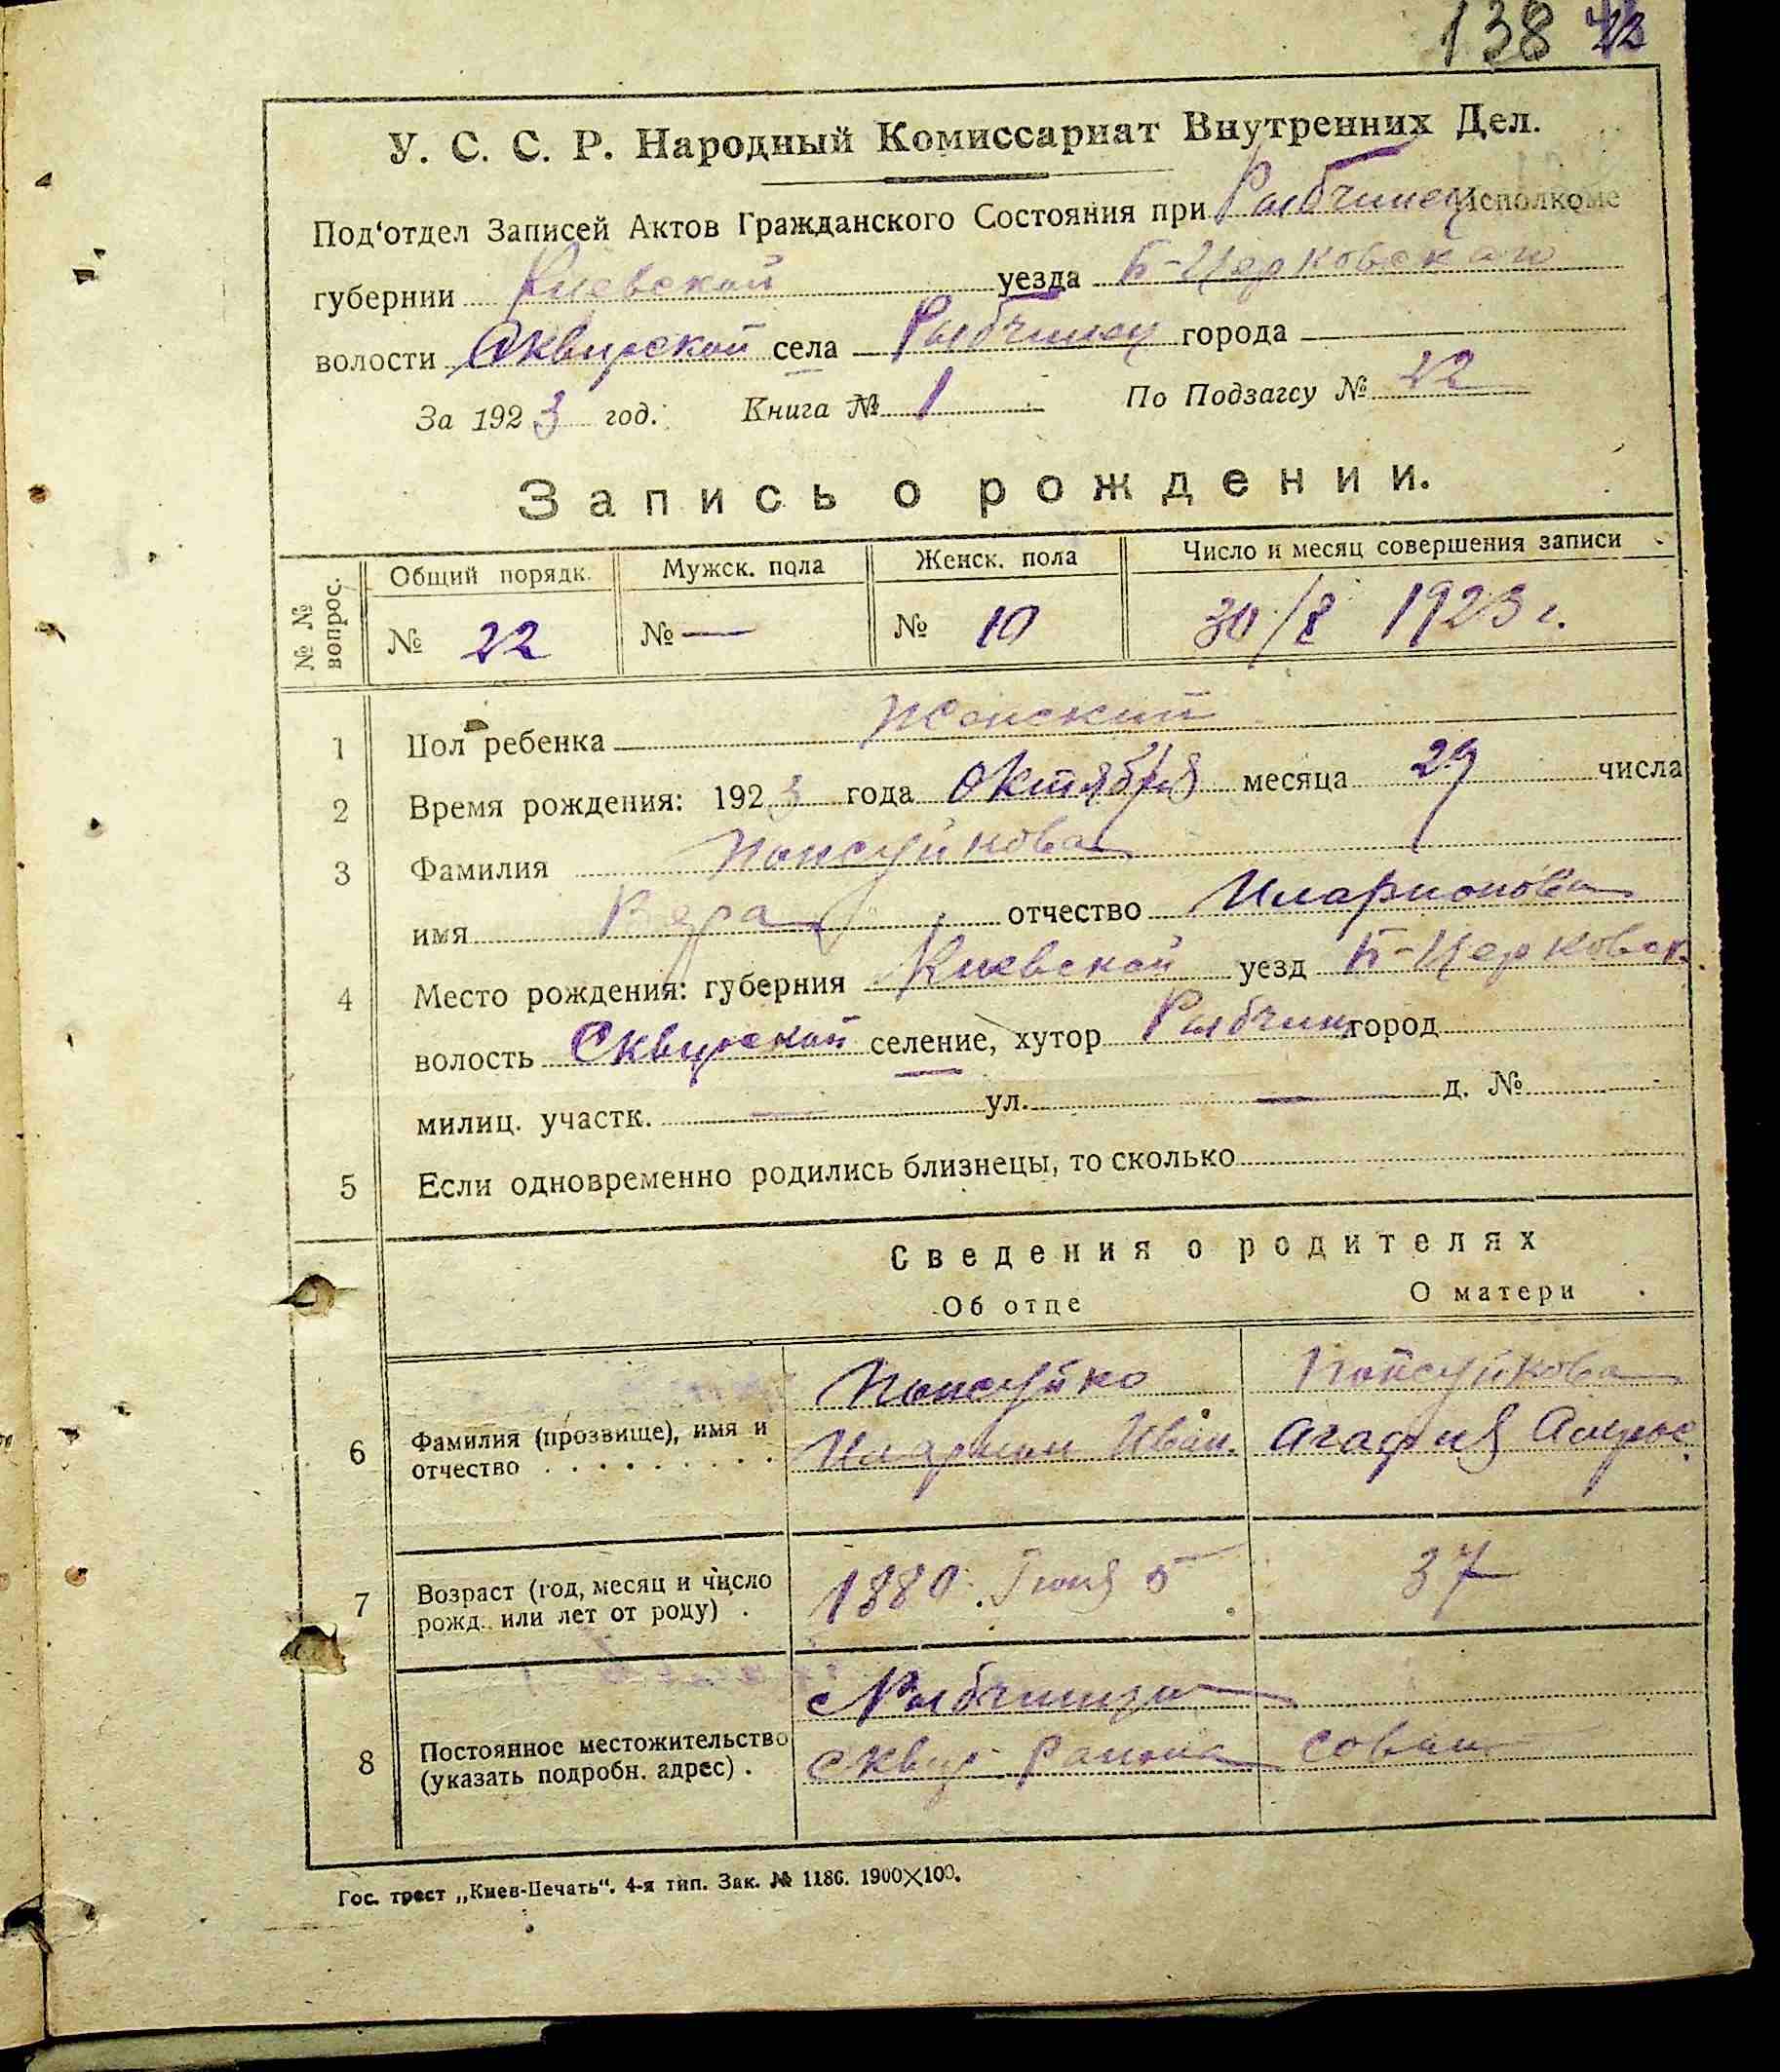 138 22
У. С. С. Р. Народный Комиссариат Внутренних Дел.
Под‘отдел Записей Актов Гражданского Состояния при Рыбчинец Исполкоме
губернии Киевской уезда Б-Церковского
волости Сквирской села Рыбчинец города
За 1923 год. Книга № 1 По Подзагсу № 22
Запись о рождении.
№ № вопрос. Общий порядк. Мужск. пола Женск. пола Число и месяц совершения записи
№ 22 № — № 10 30/X 1923 г.
1 Пол ребенка Женский
2 Время рождения: 1923 года Октября месяца 29 числа
3 Фамилия Попсуйкова
имя Вера отчество Иларионова
4 Место рождения: губерния Киевской уезд Б-Церковск.
волость Сквирской селение, хутор Рыбчин город
милиц. участк. — ул. — д. №
5 Если одновременно родились близнецы, то сколько
Сведения о родителях
Об отце О матери
Попсуйко Попсуйкова
6 Фамилия (прозвище), имя и отчество Иларион Иван. Агафия
7 Возраст (год, месяц и число рожд. или лет от роду) . 1880. Июня 5 37
с Рыбчинцы
8 Постоянное местожительство (указать подробн. адрес) . Сквир. района
Гос. трест „Киев-Печать“. 4-я тип. Зак. № 1186. 1900×100.